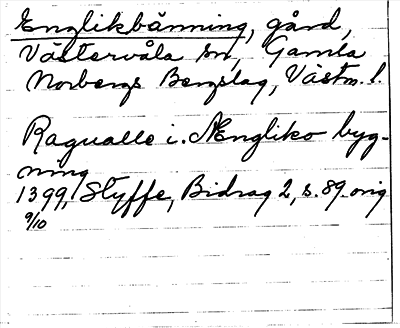 Englikbänning, gård,
Västervåla sn, Gamla
Norbergs Bergslag, Västm. l.
Ragualle i. Ængliko byg-
ning
1399, Styffe, Bidrag 2, s. 89. orig
9/10